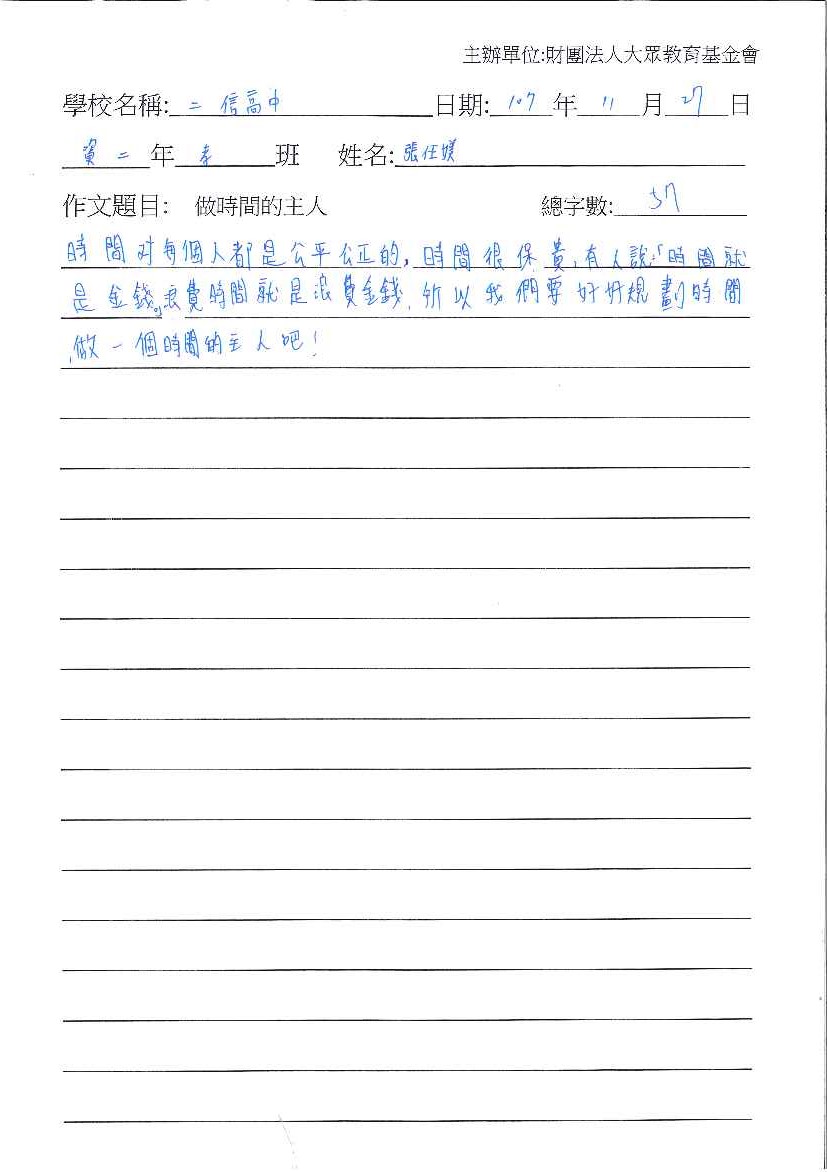 主辦單位:財團法人大眾教育基金會
學校名稱: 二信高中 日期: 107 年 11 月 27 日
資二 年 孝 班 姓名: 張任媄
作文題目: 做時間的主人 總字數: 57
時間对每個人都是公平公正的,時間很保貴,有人說:「時間就
是金錢」浪費時間就是浪費金錢,所以我們要好好規劃時間
,做一個時間的主人吧!